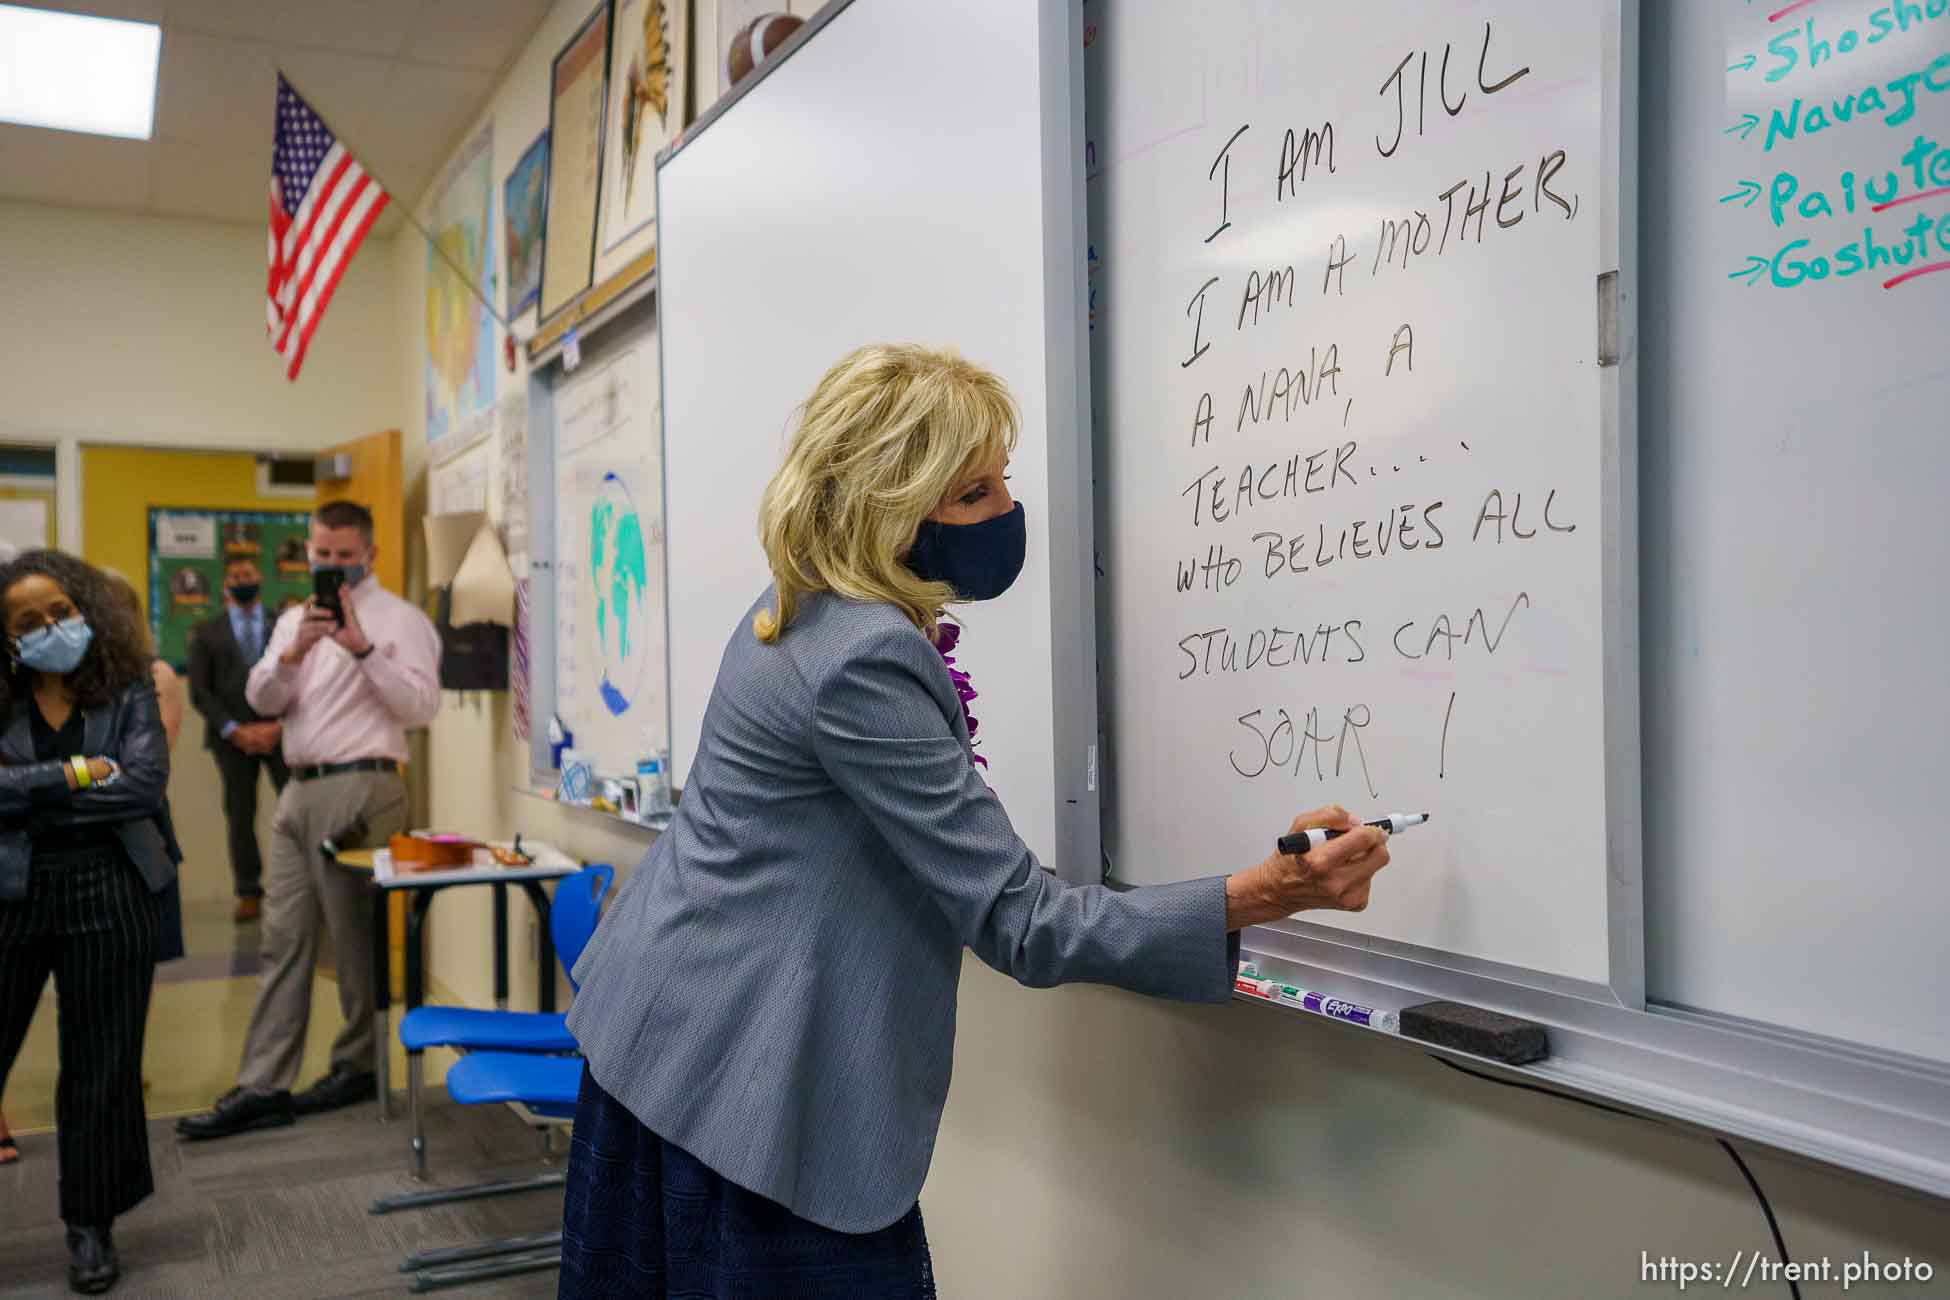 I AM JILL
I AM A MOTHER,
A NANA, A
TEACHER....
WHO BELIEVES ALL
STUDENTS CAN
SOAR !
→ Navajo
→ Paiute
→ Goshute
EXPO
https://trent.photo